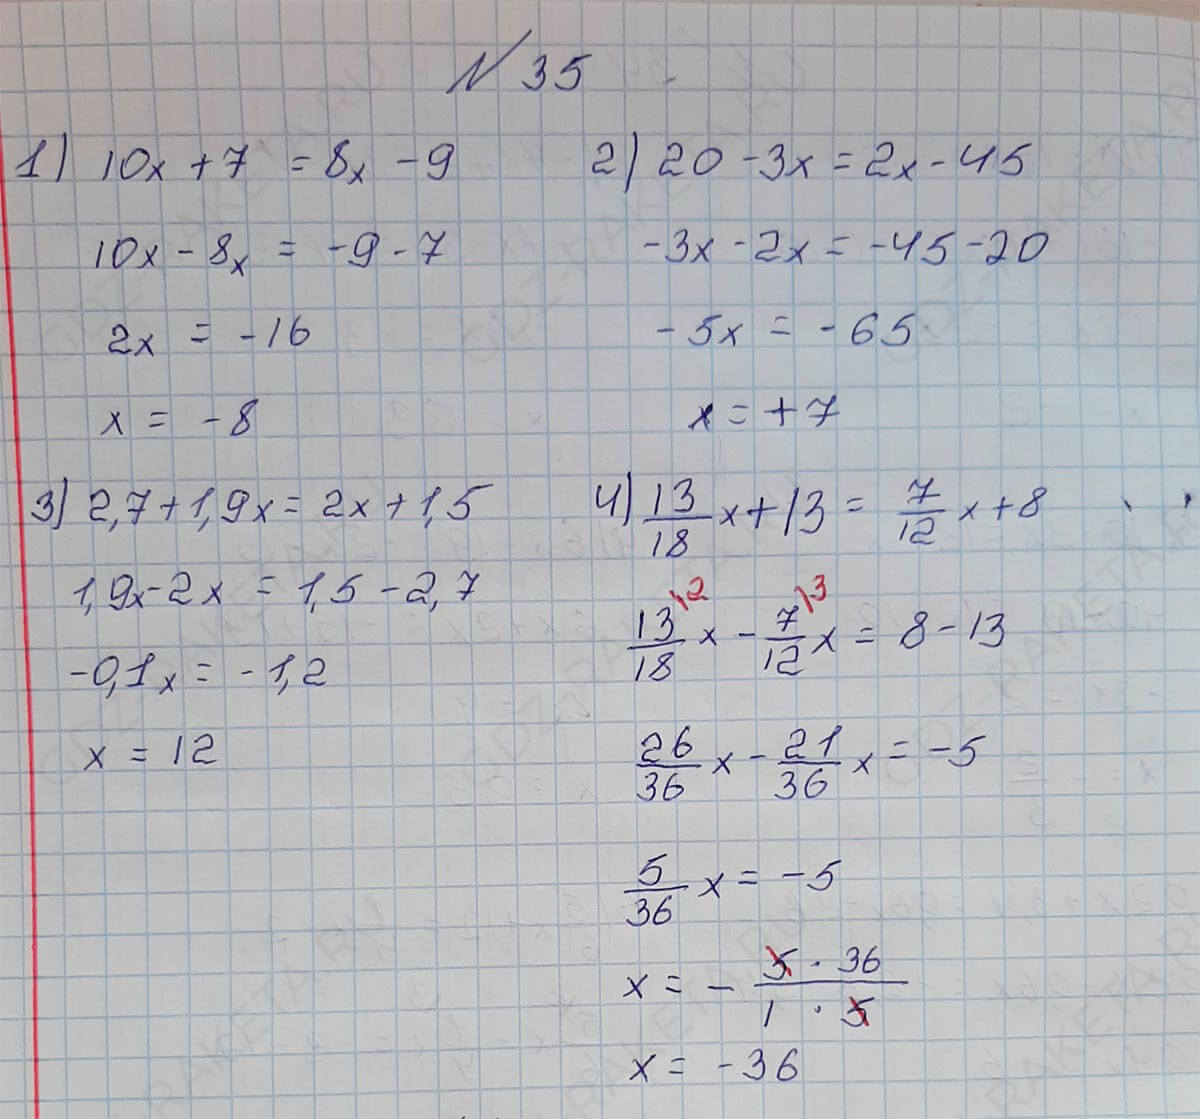 № 35
1) 10x + 7 = 8x - 9
10x - 8x = -9 - 7
2x = -16
x = -8
2) 20 - 3x = 2x - 45
-3x - 2x = -45 - 20
-5x = -65
x = +7
3) 2,7 + 1,9x = 2x + 1,5
1,9x - 2x = 1,5 - 2,7
-0,1x = -1,2
x = 12
4) 13/18 x + 13 = 7/12 x + 8
13\2/18 x - 7\3/12 x = 8 - 13
26/36 x - 21/36 x = -5
5/36 x = -5
x = - 5 · 36 / 1 · 5
x = -36
GDZ-RAKETA.RU